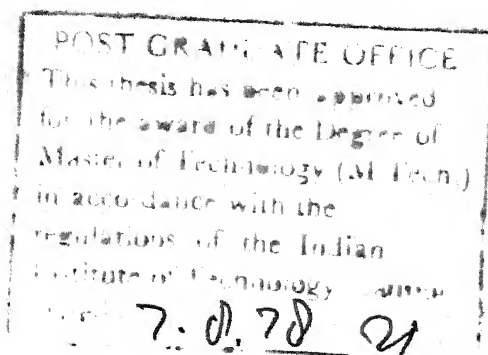 POST GRADUATE OFFICE
This thesis has been approved
for the award of the Degree of
Master of Technology (M Tech.)
in accordance with the
regulations of the Indian
Institute of Technology
7.8.78 21